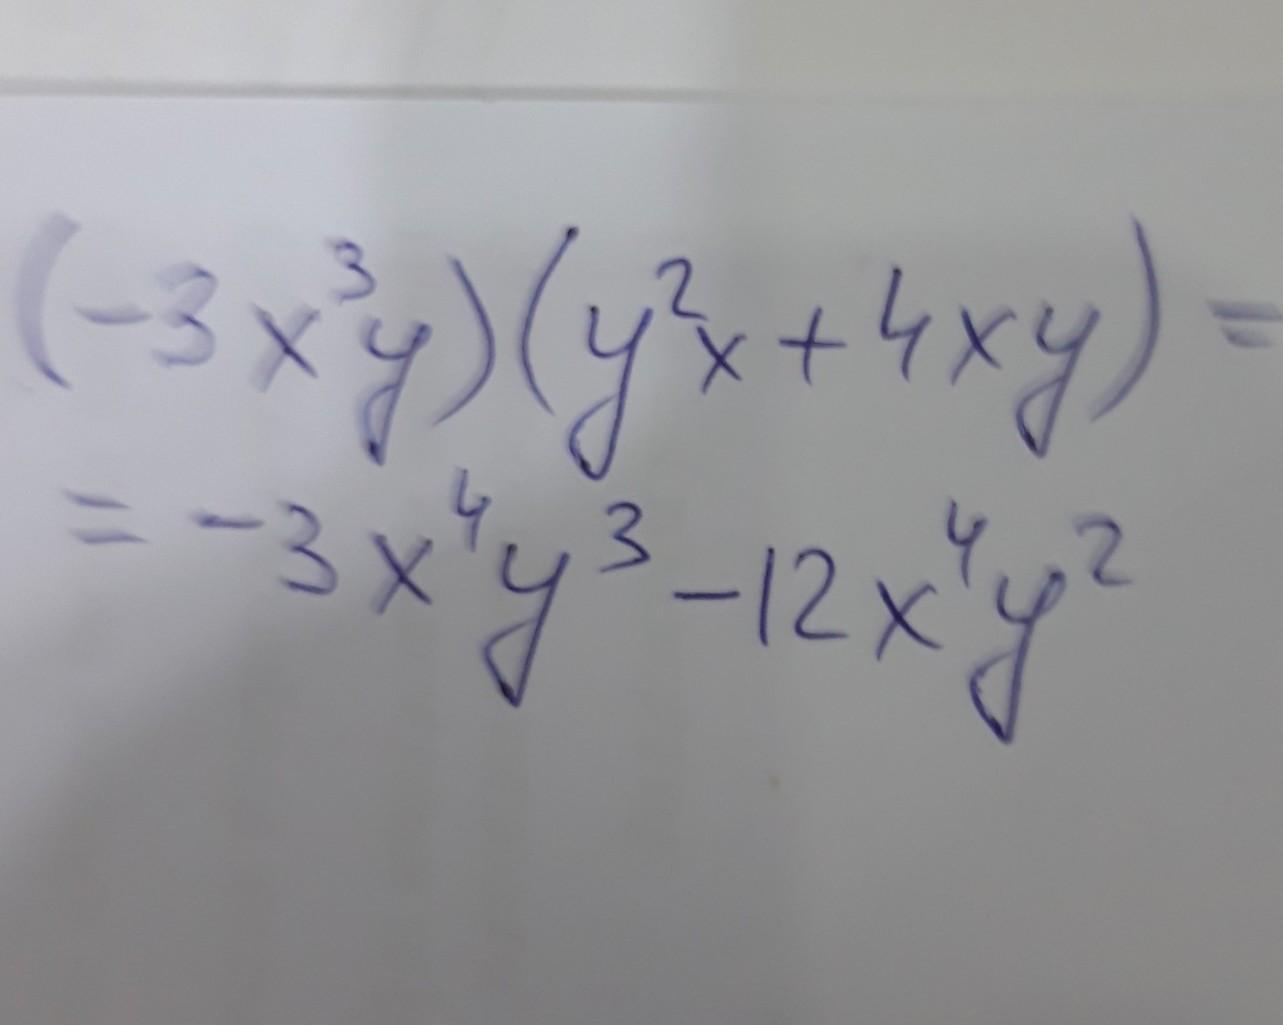 (-3x³y)(y²x+4xy)=
=-3x⁴y³-12x⁴y²